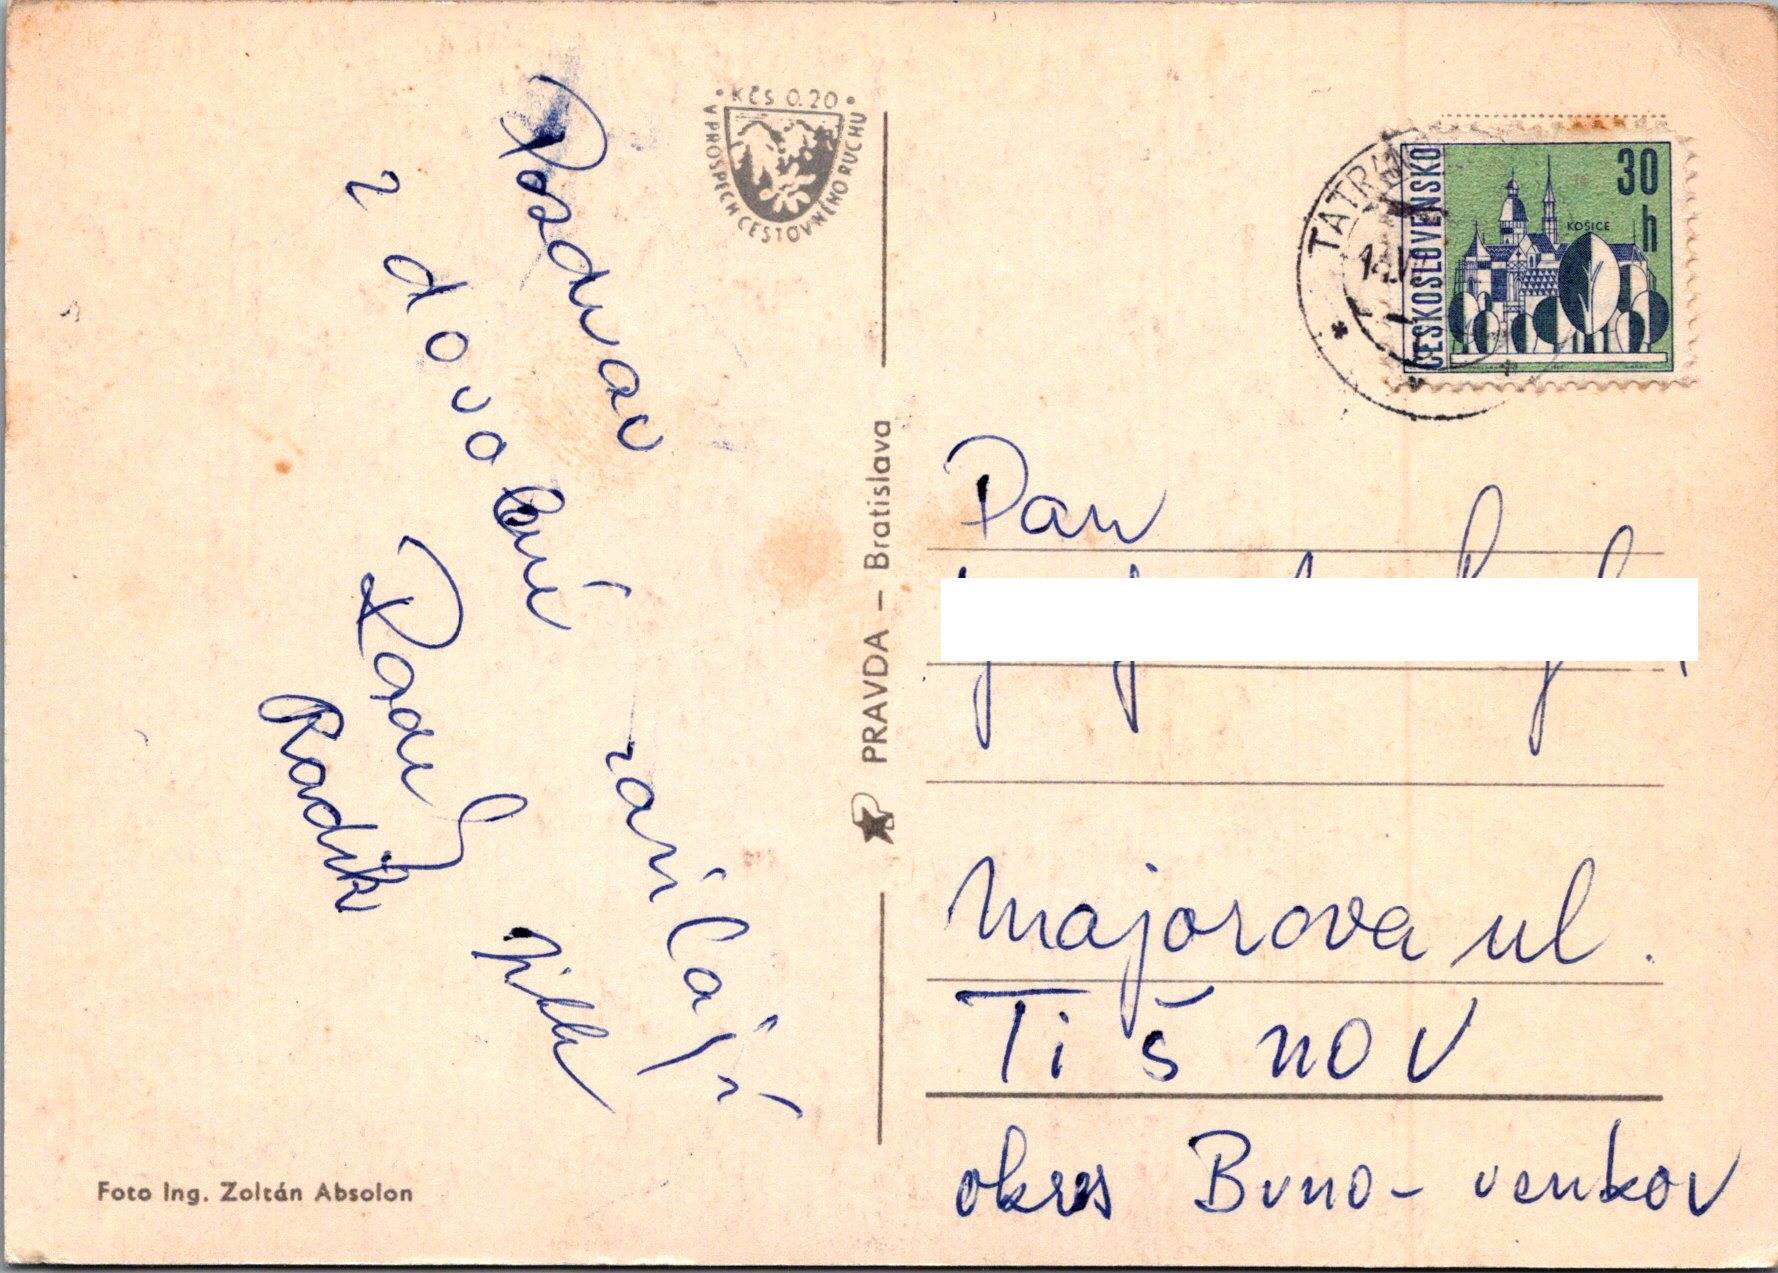 Pozdrav
z dovolené
zasílají
Pavel
Jitka
Radik
Foto Ing. Zoltán Absolon
• KČS 0.20 •
V PROSPECH CESTOVNÉHO RUCHU
PRAVDA – Bratislava
TATR
ČESKOSLOVENSKO
30
h
KOŠICE
Pan
Majorova ul.
Tišnov
okres Brno-venkov